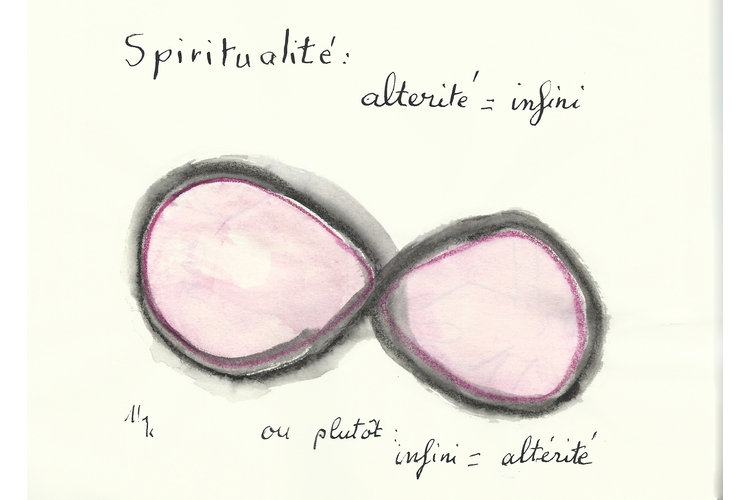 Spiritualité:
alterité = infini
ou plutôt:
infini = altérité